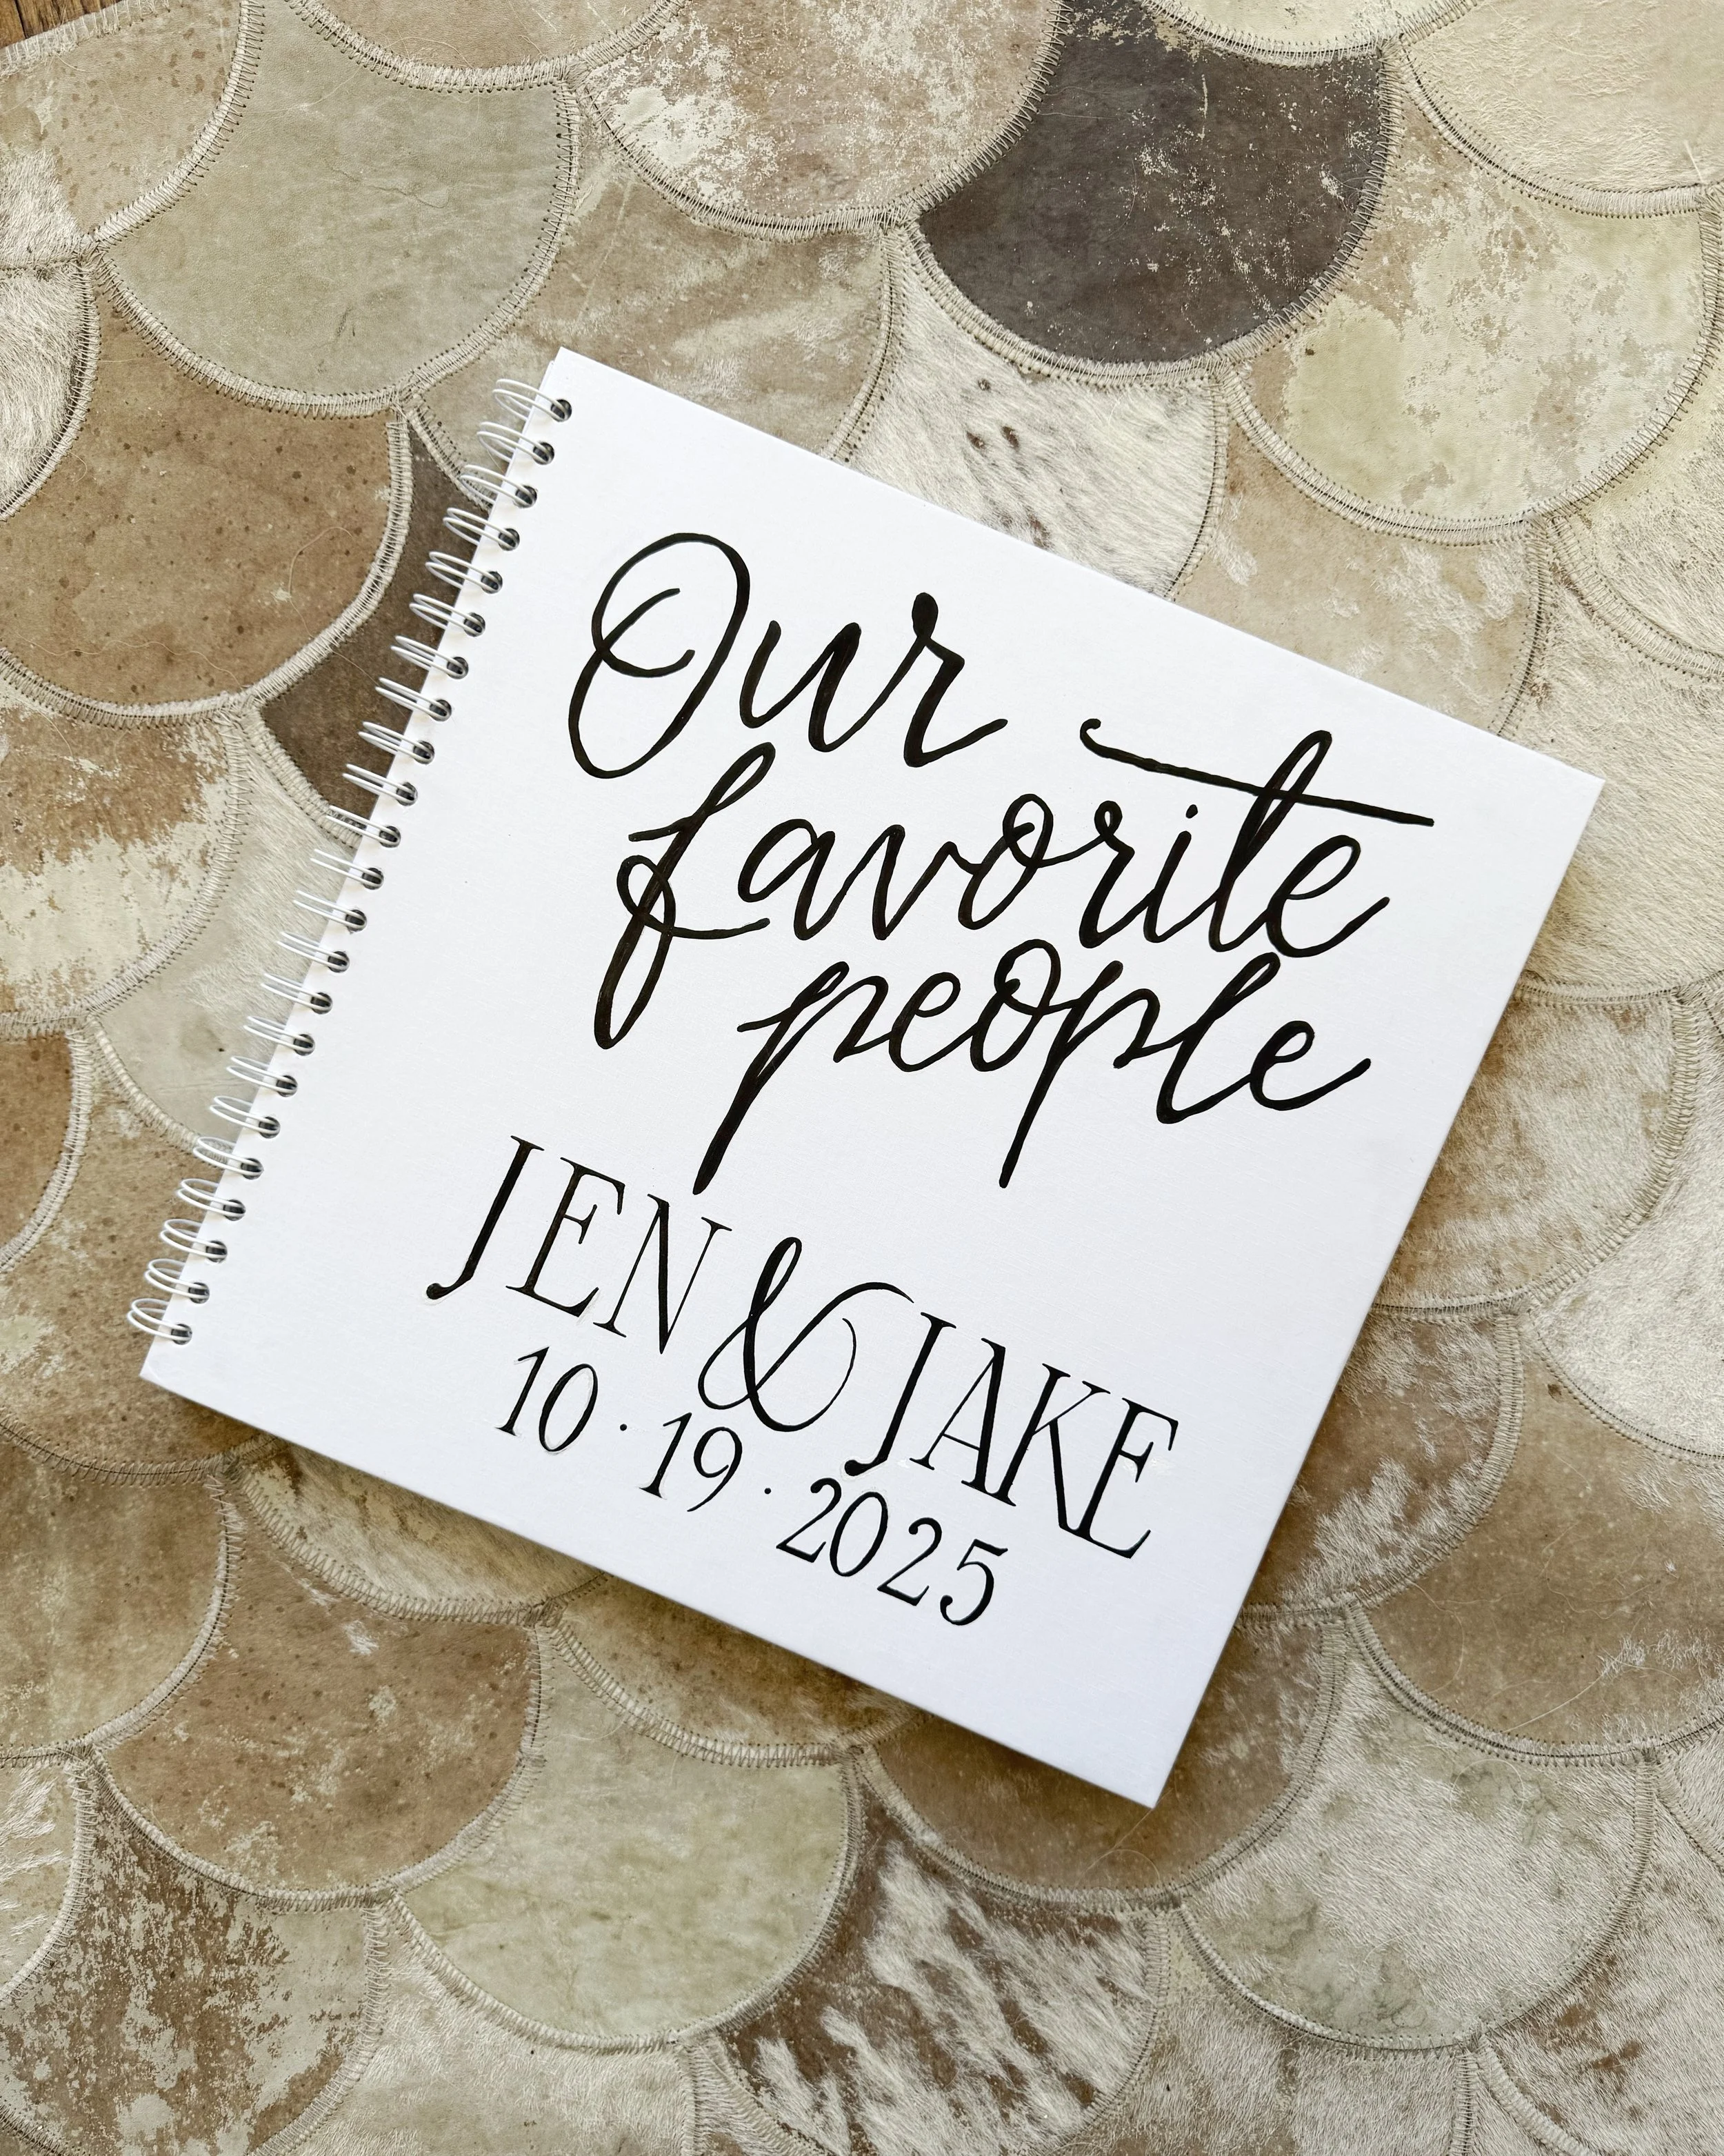 Our
favorite
people
JEN & JAKE
10 · 19 · 2025